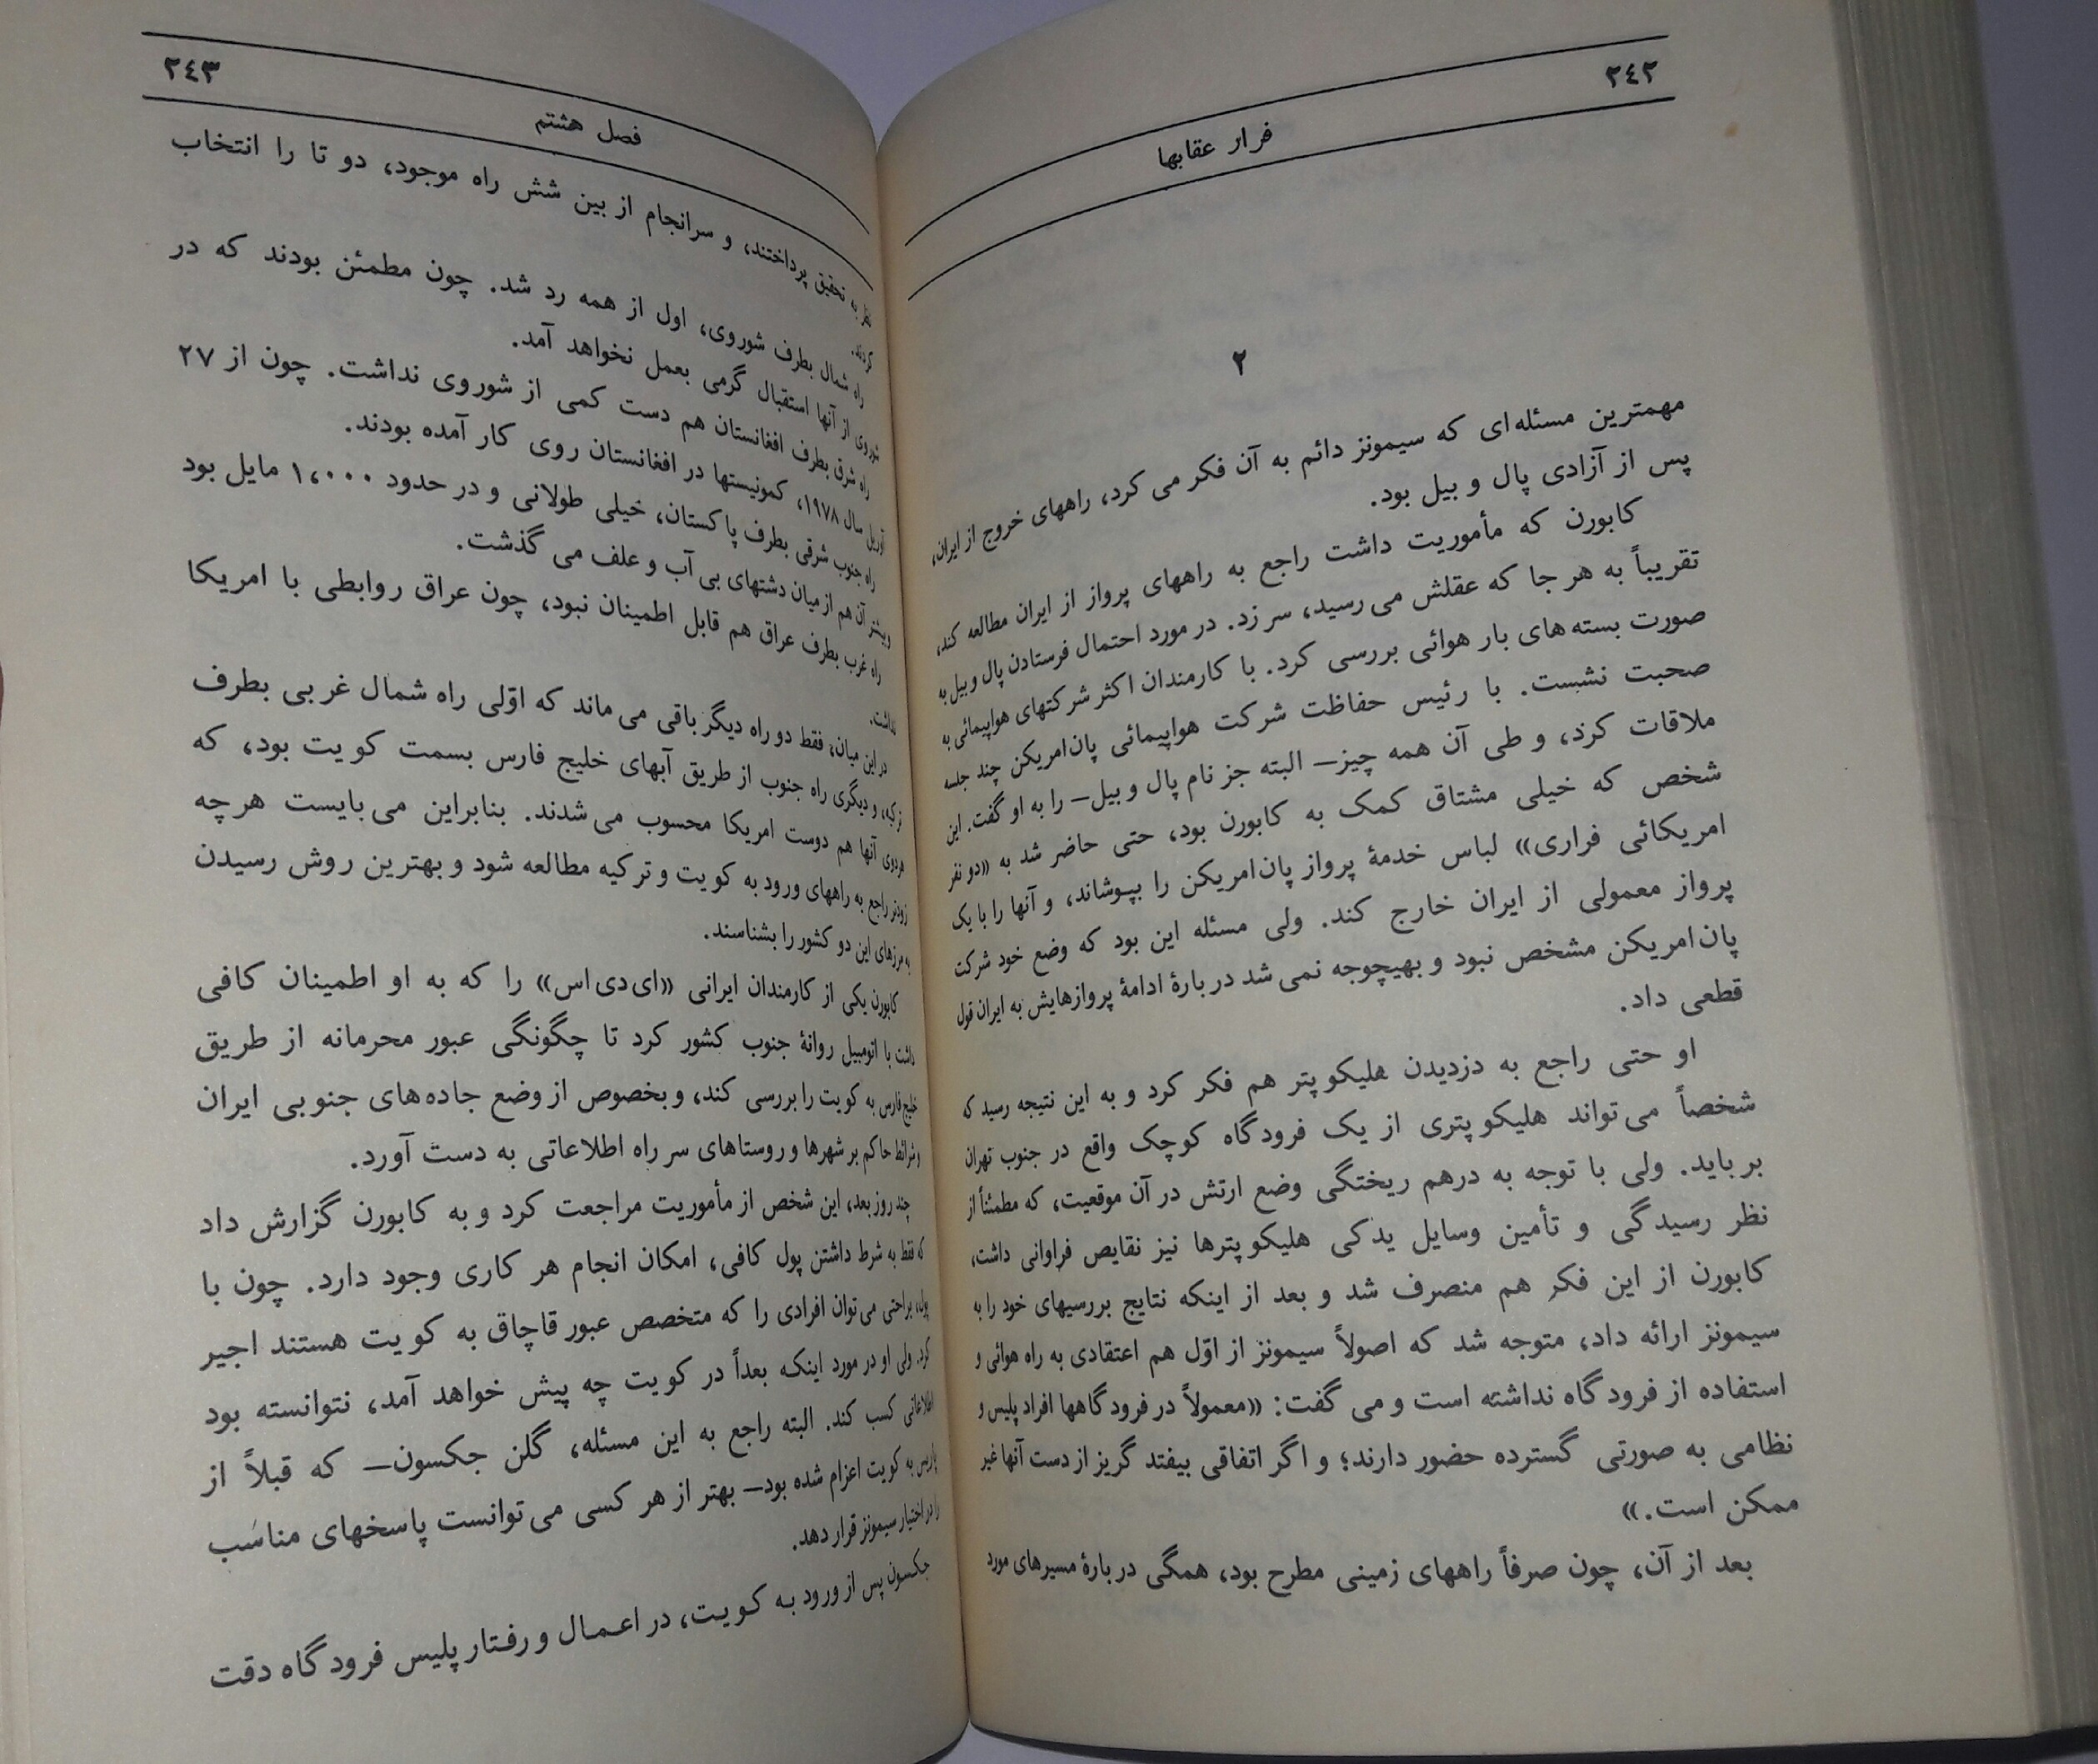 ۲٤۲
فرار عقابها
۲
مهمترین مسئله‌ای که سیمونز دائم به آن فکر می کرد، راههای خروج از ایران،
پس از آزادی پال و بیل بود.
کابورن که مأموریت داشت راجع به راههای پرواز از ایران مطالعه کند،
تقریباً به هر جا که عقلش می رسید، سر زد. در مورد احتمال فرستادن پال و بیل به
صورت بسته های بار هوائی بررسی کرد. با کارمندان اکثر شرکتهای هواپیمائی به
صحبت نشست. با رئیس حفاظت شرکت هواپیمائی پان‌امریکن چند جلسه
ملاقات کرد، و طی آن همه چیز— البته جز نام پال و بیل— را به او گفت. این
شخص که خیلی مشتاق کمک به کابورن بود، حتی حاضر شد به «دو نفر
امریکائی فراری» لباس خدمهٔ پرواز پان‌امریکن را بپوشاند، و آنها را با یک
پرواز معمولی از ایران خارج کند. ولی مسئله این بود که وضع خود شرکت
پان‌امریکن مشخص نبود و بهیچوجه نمی شد در بارهٔ ادامهٔ پروازهایش به ایران قول
قطعی داد.
او حتی راجع به دزدیدن هلیکوپتر هم فکر کرد و به این نتیجه رسید که
شخصاً می تواند هلیکوپتری از یک فرودگاه کوچک واقع در جنوب تهران
برباید. ولی با توجه به درهم ریختگی وضع ارتش در آن موقعیت، که مطمئناً از
نظر رسیدگی و تأمین وسایل یدکی هلیکوپترها نیز نقایص فراوانی داشت،
کابورن از این فکر هم منصرف شد و بعد از اینکه نتایج بررسیهای خود را به
سیمونز ارائه داد، متوجه شد که اصولاً سیمونز از اوّل هم اعتقادی به راه هوائی و
استفاده از فرودگاه نداشته است و می گفت: «معمولاً در فرودگاهها افراد پلیس و
نظامی به صورتی گسترده حضور دارند؛ و اگر اتفاقی بیفتد گریز از دست آنها غیر
ممکن است.»
بعد از آن، چون صرفاً راههای زمینی مطرح بود، همگی در بارهٔ مسیرهای مورد
۲٤۳
فصل هشتم
نظر به تحقیق پرداختند، و سرانجام از بین شش راه موجود، دو تا را انتخاب
کردند.
راه شمال بطرف شوروی، اول از همه رد شد. چون مطمئن بودند که در
شوروی از آنها استقبال گرمی بعمل نخواهد آمد.
راه شرق بطرف افغانستان هم دست کمی از شوروی نداشت. چون از ۲۷
آوریل سال ۱۹۷۸، کمونیستها در افغانستان روی کار آمده بودند.
راه جنوب شرقی بطرف پاکستان، خیلی طولانی و در حدود ۱،۰۰۰ مایل بود
و بیشتر آن هم از میان دشتهای بی آب و علف می گذشت.
راه غرب بطرف عراق هم قابل اطمینان نبود، چون عراق روابطی با امریکا
نداشت.
در این میان، فقط دو راه دیگر باقی می ماند که اوّلی راه شمال غربی بطرف
ترکیه، و دیگری راه جنوب از طریق آبهای خلیج فارس بسمت کویت بود، که
هردوی آنها هم دوست امریکا محسوب می شدند. بنابراین می بایست هر چه
زودتر راجع به راههای ورود به کویت و ترکیه مطالعه شود و بهترین روش رسیدن
به مرزهای این دو کشور را بشناسند.
کابورن یکی از کارمندان ایرانی «ای‌دی‌اس» را که به او اطمینان کافی
داشت با اتومبیل روانهٔ جنوب کشور کرد تا چگونگی عبور محرمانه از طریق
خلیج فارس به کویت را بررسی کند، و بخصوص از وضع جاده های جنوبی ایران
و شرائط حاکم بر شهرها و روستاهای سر راه اطلاعاتی به دست آورد.
چند روز بعد، این شخص از مأموریت مراجعت کرد و به کابورن گزارش داد
که فقط به شرط داشتن پول کافی، امکان انجام هر کاری وجود دارد. چون با
پول، براحتی می توان افرادی را که متخصص عبور قاچاق به کویت هستند اجیر
کرد. ولی او در مورد اینکه بعداً در کویت چه پیش خواهد آمد، نتوانسته بود
اطلاعاتی کسب کند. البته راجع به این مسئله، گلن جکسون— که قبلاً از
پاریس به کویت اعزام شده بود— بهتر از هر کسی می توانست پاسخهای مناسب
را در اختیار سیمونز قرار دهد.
جکسون پس از ورود به کویت، در اعمال و رفتار پلیس فرودگاه دقت